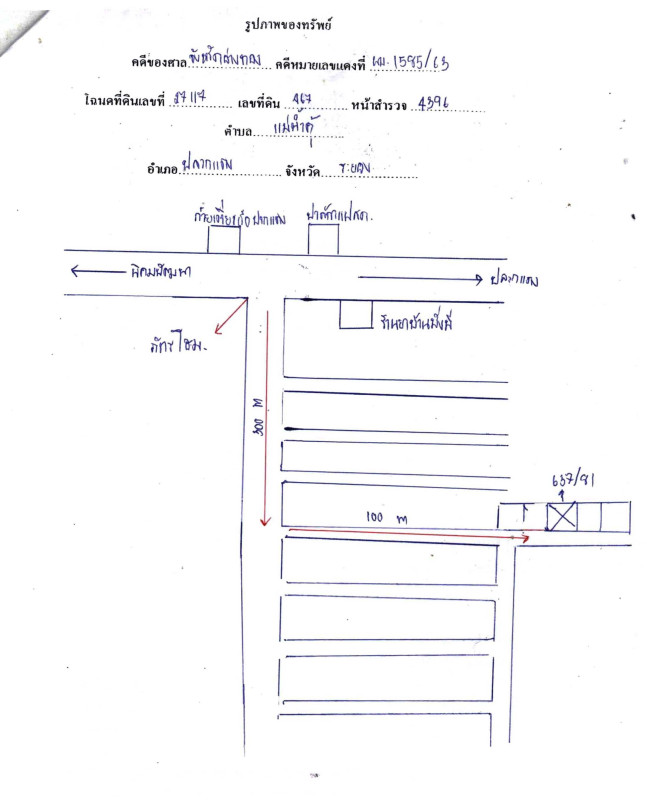 รูปภาพของทรัพย์
คดีของศาล จังหวัด คดีหมายเลขแดงที่ ผบ. 1585/63
โฉนดที่ดินเลขที่ 27117 เลขที่ดิน 467 หน้าสำรวจ 4396
ตำบล แม่น้ำคู้
อำเภอ ปลวกแดง จังหวัด ระยอง
ก๋วยเตี๋ยวเรือ ปลวกแดง
ป่าสักแฝด
นิคมพัฒนา
ปลวกแดง
ร้านยาบ้านมั่งมี
ฉัตรโฮม.
300 M
637/91
100 m